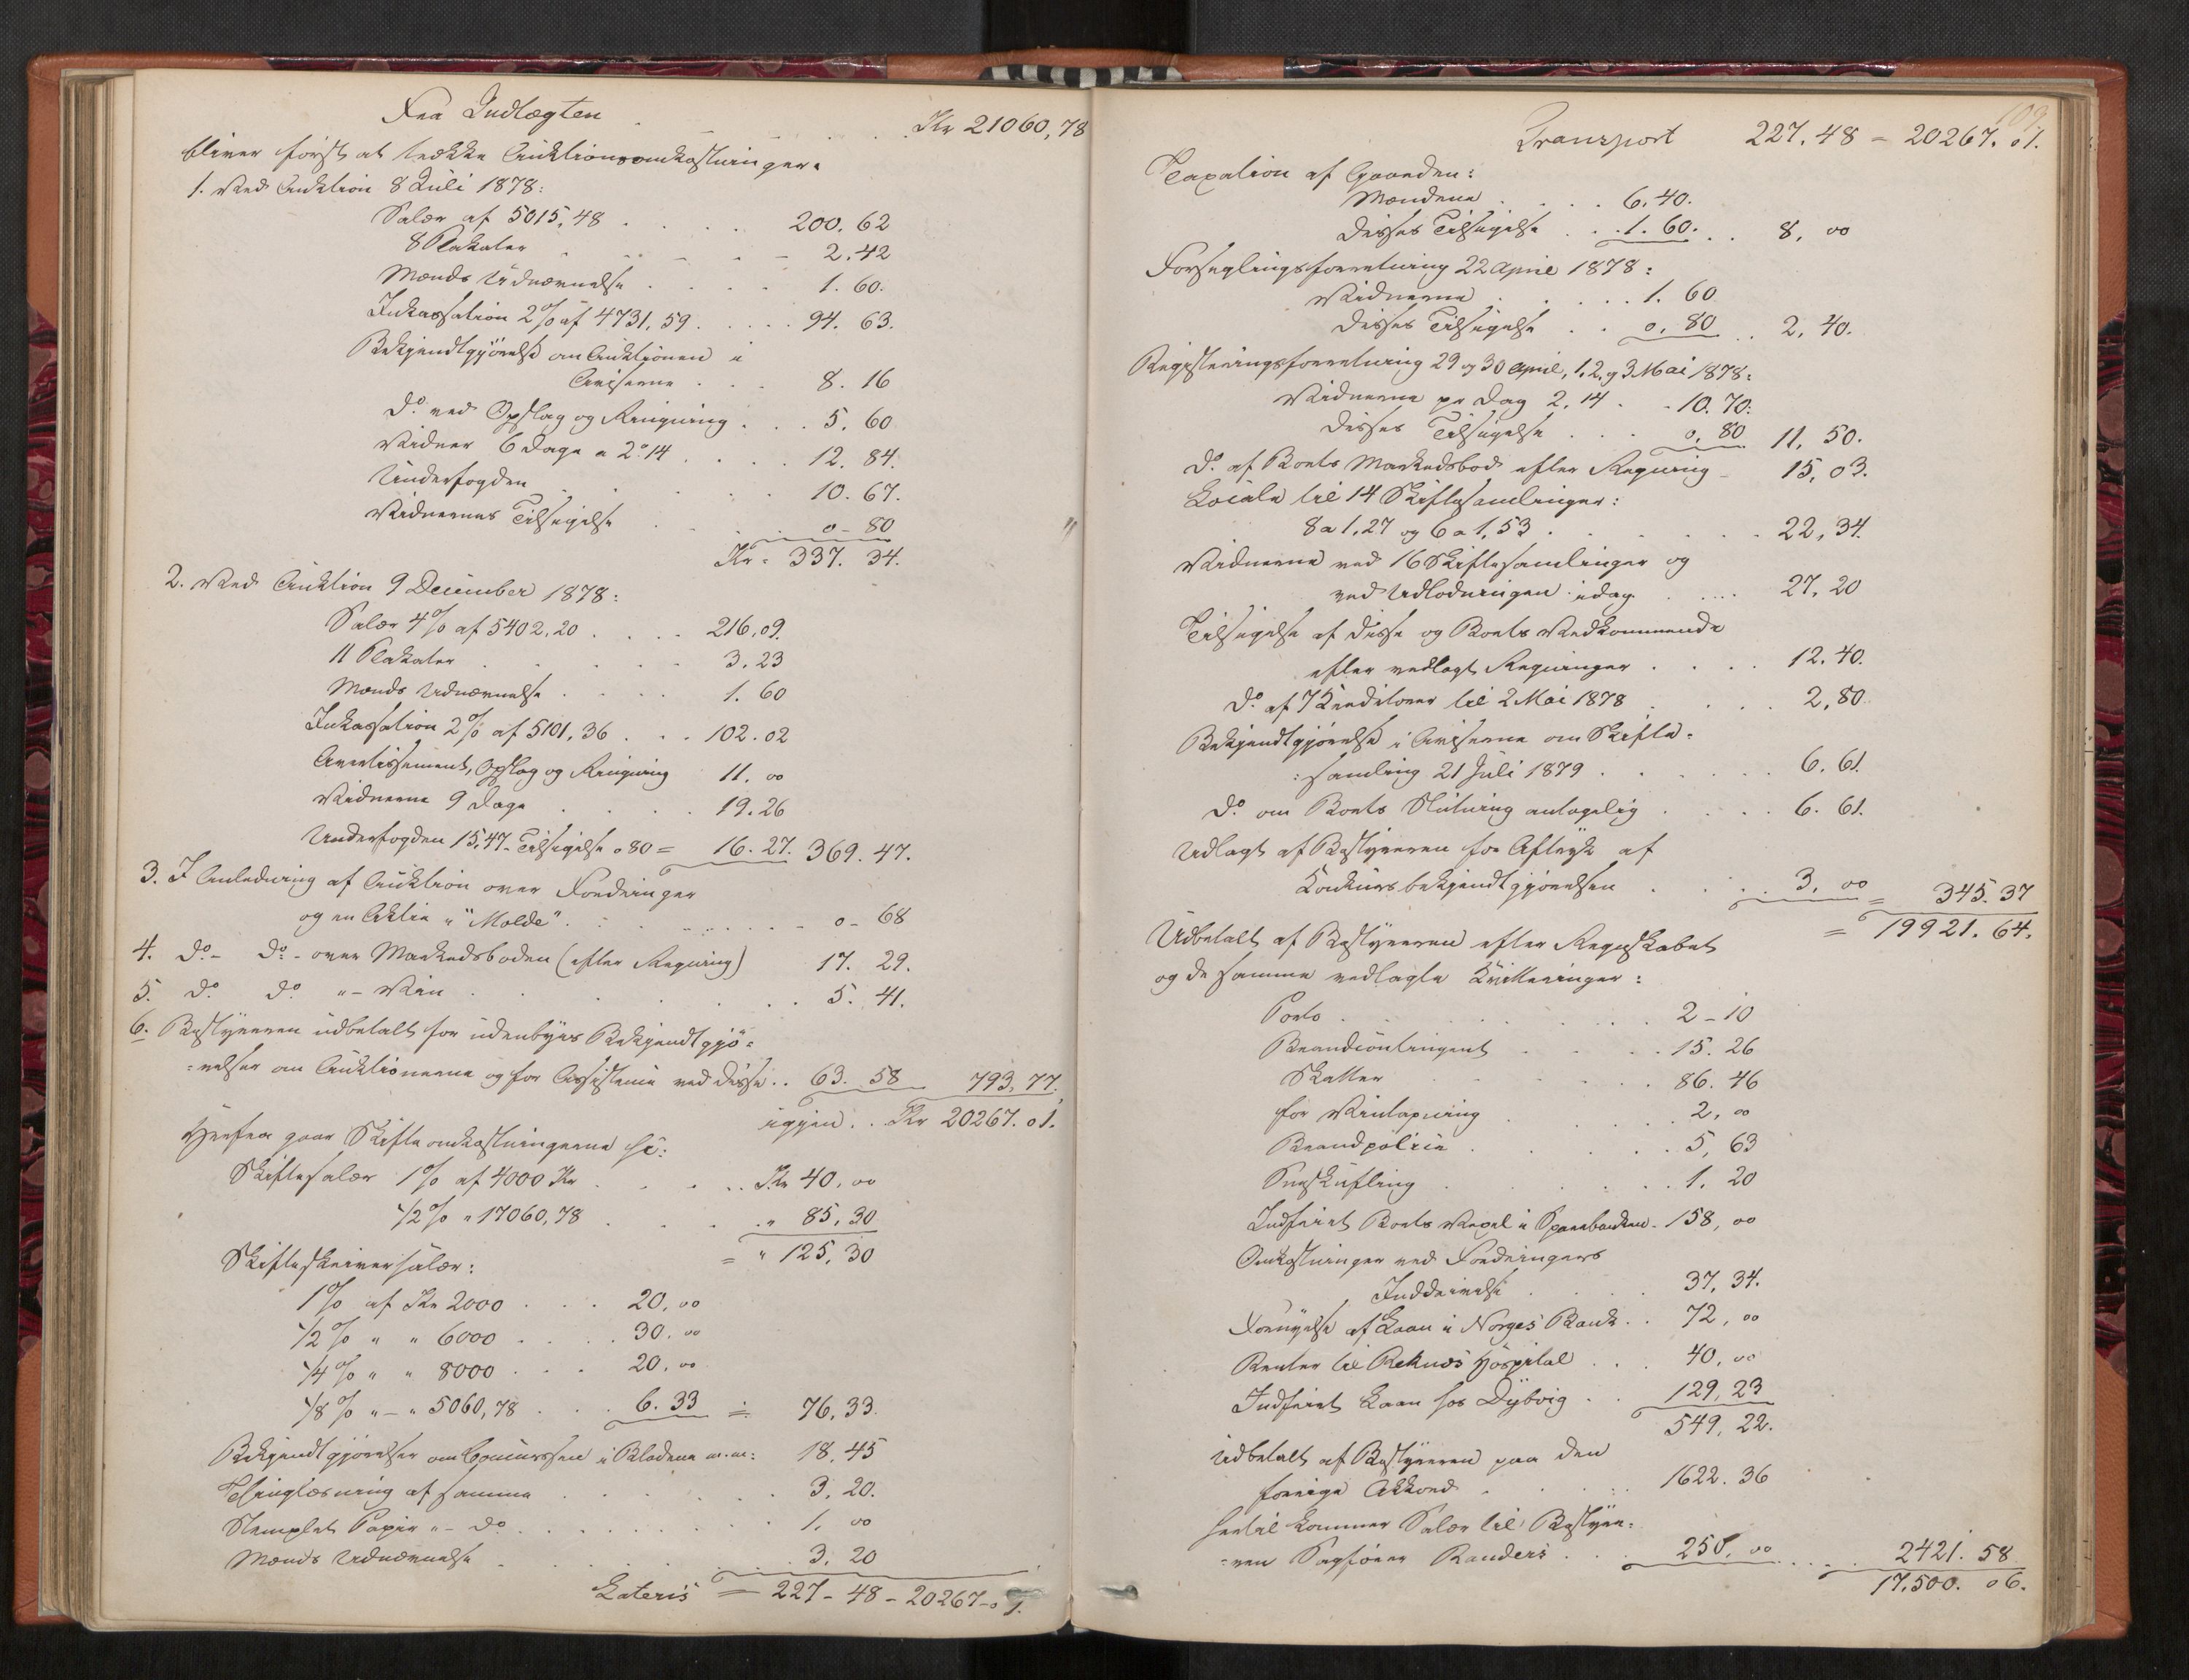 Fra Indtægten . . . . . Kr 21060,78
bliver först at trække Auktionsomkostninger.
1. Ved Auktion 8 Juli 1878:
Salær af 5015,48 . . . . 200. 62
8 Plakater . . . . 2.42
Mænds Udnævnelse . . . . 1. 60.
Inkassation 2% af 4731,59 . . . . 94. 63.
Bekjendtgjörelse om Auktionen i
Aviserne . . . 8. 16
Do. ved Opslag og Ringning . . . 5. 60
Vidner 6 Dage a 2.14 . . . . 12. 84.
Underfogden . . . . 10. 67.
Vidnernes Tilsigelse . . . . 0 - 80
Kr. 337. 34.
2. Ved Auktion 9 December 1878:
Salær 4% af 5402,20 . . . . 216,09.
11 Plakater . . . . 3.23
Mænds Udnævnelse . . . . 1. 60
Inkassation 2% af 5101,36 . . . 102.02
Avertissement, Opslag og Ringning 11. 00
Vidnerne 9 Dage . . . . 19.26
Underfogden 15,47 - Tilsigelse 0 80 = 16.27. 369.47.
3. I Anledning af Auktion over Fordringer
og en Aktie i "Molde" . . . . 0 - 68
4. Do - Do - over Markedsboden (efter Regning) 17. 29.
5. Do Do " - Vin . . . . 5. 41.
6. Bestyreren udbetalt for udenbyes Bekjendtgjö=
=relser om Auktionerne og for Assistence ved disse . . 63. 58 793,77.
igjen . . Kr 20267.01.
Herfra gaar Skifteomkostningerne så:
Skiftesalær 1% af 4000 Kr . . . . Kr 40,00
1/2 % " 17060,78 . . . . " 85,30
= " 125,30
Skifteskriversalær:
1% af Kr 2000 . . . 20,00
1/2 % " " 6000 . . . 30,00
1/4 % " " 8000 . . . 20,00
1/8 % " - " 5060,78 . . . 6.33 = 76,33.
Bekjendtgjörelser om Concurssen i Bladene m.m: 18,45
Thinglæsning af samme . . . . 3,20.
Stemplet Papir " - Do . . . . 1,00
Mænds Udnævnelse . . . . 3,20
Lateris = 227 - 48 - 20267 - 01.
109
Transport 227.48 = 20267.01.
Taxation af Gaarden:
Mændene . . . . 6.40.
Disses Tilsigelse . . . 1.60. . . 8,00
Forseglingsforretning 22 April 1878:
Vidnerne . . . . 1.60
Disses Tilsigelse . . 0,80 . . 2,40.
Registreringsforretning 29 og 30 April, 1, 2, og 3 Mai 1878:
Vidnerne pr Dag 2,14 . . 10.70.
Disses Tilsigelse . . . 0,80 11,50.
Do. af Boets Markedsbod efter Regning - 15,03.
Locale til 14 Skiftesamlinger:
8 a 1,27 og 6 a 1,53 . . . . 22,34.
Vidnerne ved 16 Skiftesamlinger og
ved Udlodningen idag . . . . 27,20
Tilsigelse af disse og Boets Vedkommende
efter vedlagt Regninger . . . . 12.40.
Do. af 7 Kreditorer til 2 Mai 1878 . . . . 2,80.
Bekjendtgjörelse i Aviserne om Skifte=
=samling 21 Juli 1879 . . . . 6.61.
Do. om Boets Slutning antagelig . . . . 6.61.
Udlagt af Bestyreren for Aftryk af
Konkursbekjendtgjörelsen . . . . 3,00 = 345.37
= 19921.64.
Udbetalt af Bestyreren efter Regnskabet
og de samme vedlagte Kvitteringer:
Porto . . . . 2 - 10
Brandcontingent . . . . 15.26
Skatter . . . . 86.46
for Vintapning . . . . 2,00
Brandpolice . . . . 5,63
. . . . 1.20
Indfriet Boets Vexel i Sparebanken - 158,00
Omkostninger ved Fordringers
Inddrivelse . . . . 37,34.
Fornyelse af Laan i Norges Bank . . 72,00
Renter til Reknes Hospital . . . 40,00
Indfriet Laan hos Dybvig . . 129,23
549,22.
Udbetalt af Bestyreren paa den
forrige Akkord . . . . 1622.36
hertil kommer Salær til Bestyre=
=ren Sagförer Randers . . . 250,00 . . . . 2421.58
17,500.06.